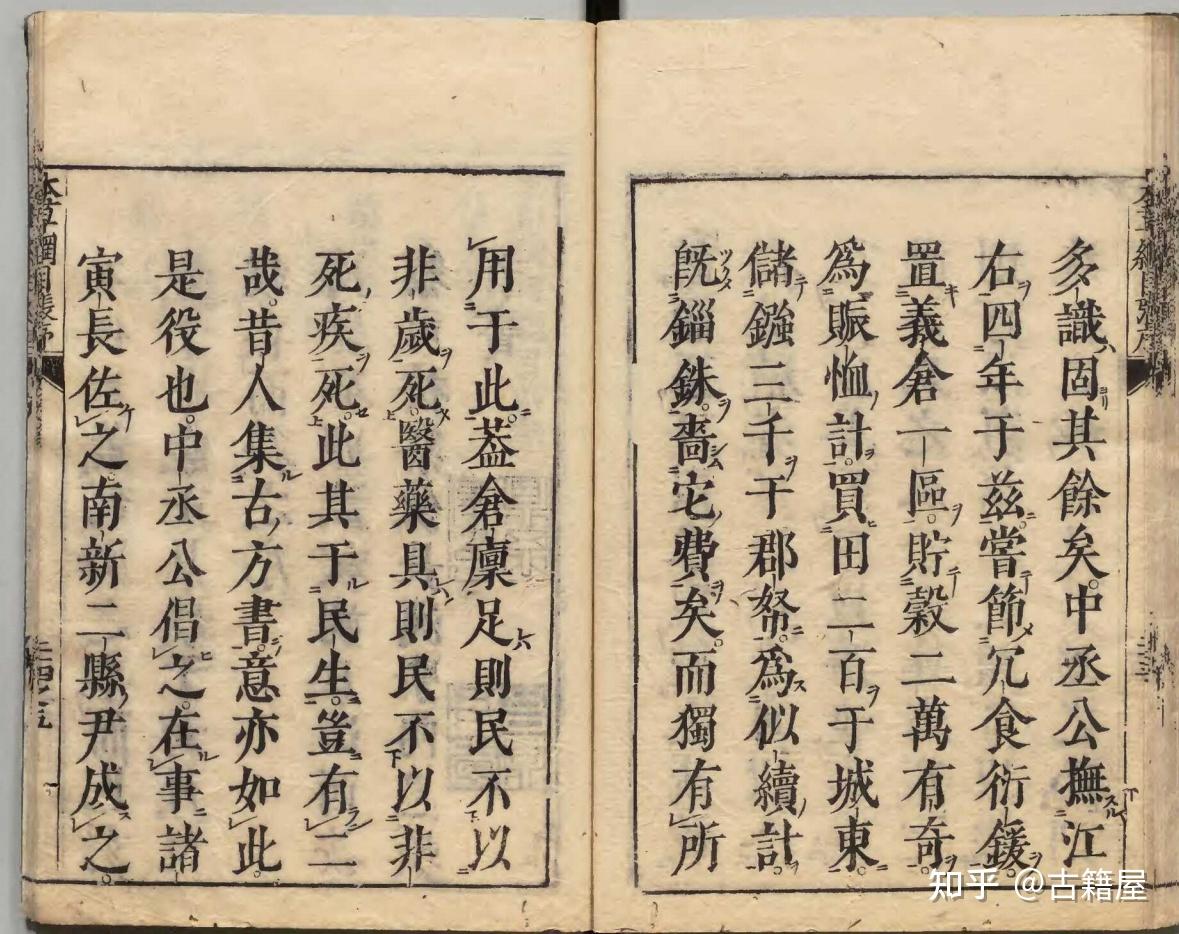 多識固其餘矣中丞公撫江
右四年于兹嘗節冗食衍鍰
置義倉一區貯穀二萬有奇
為賑恤計買田二百于城東
儲鏹三千于郡帑為似續計
旣錙銖嗇它費矣而獨有所
用于此葢倉廩足則民不以
非歲死醫藥具則民不以非
死疾死此其于民生豈有二
哉昔人集古方書意亦如此
是役也中丞公倡之在事諸
寅長佐之南新二縣尹成之
知乎 @古籍屋